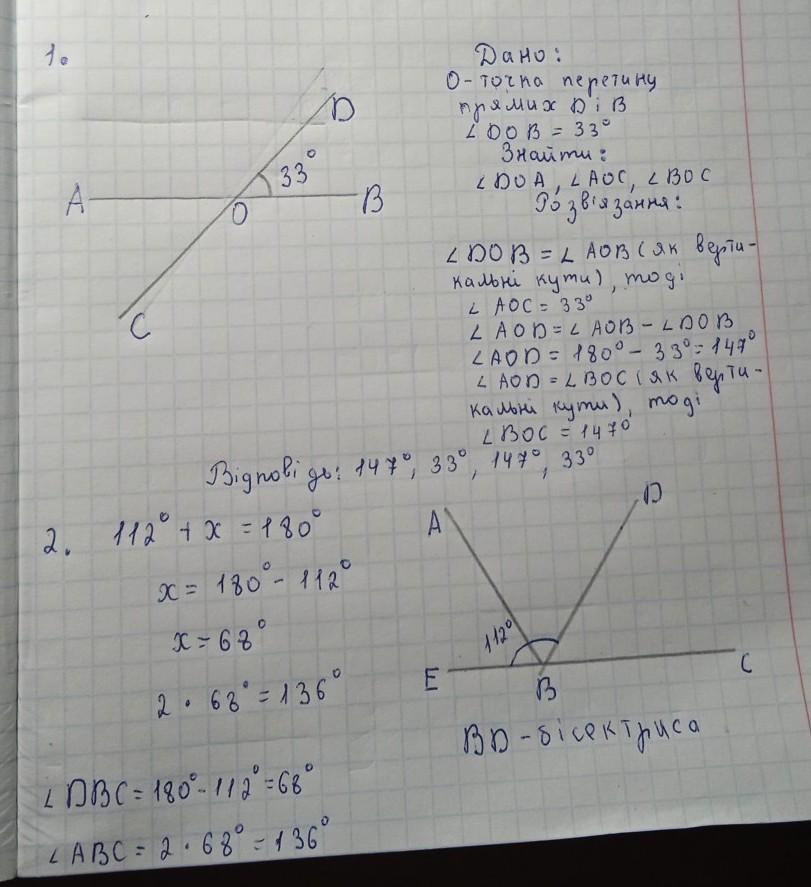 1.
D
33°
A
O
B
C
Дано:
O - точка перетину
прямих D і B
∠DOB = 33°
Знайти:
∠DOA, ∠AOC, ∠BOC
Розв'язання:
∠DOB = ∠AOB (як верти-
кальні кути), тоді
∠AOC = 33°
∠AOD = ∠AOB - ∠DOB
∠AOD = 180° - 33° = 147°
∠AOD = ∠BOC (як верти-
кальні кути), тоді
∠BOC = 147°
Відповідь: 147°, 33°, 147°, 33°
2. 112° + x = 180°
x = 180° - 112°
x = 68°
2 · 68° = 136°
∠DBC = 180° - 112° = 68°
∠ABC = 2 · 68° = 136°
A
D
112°
E
B
C
BD - бісектриса